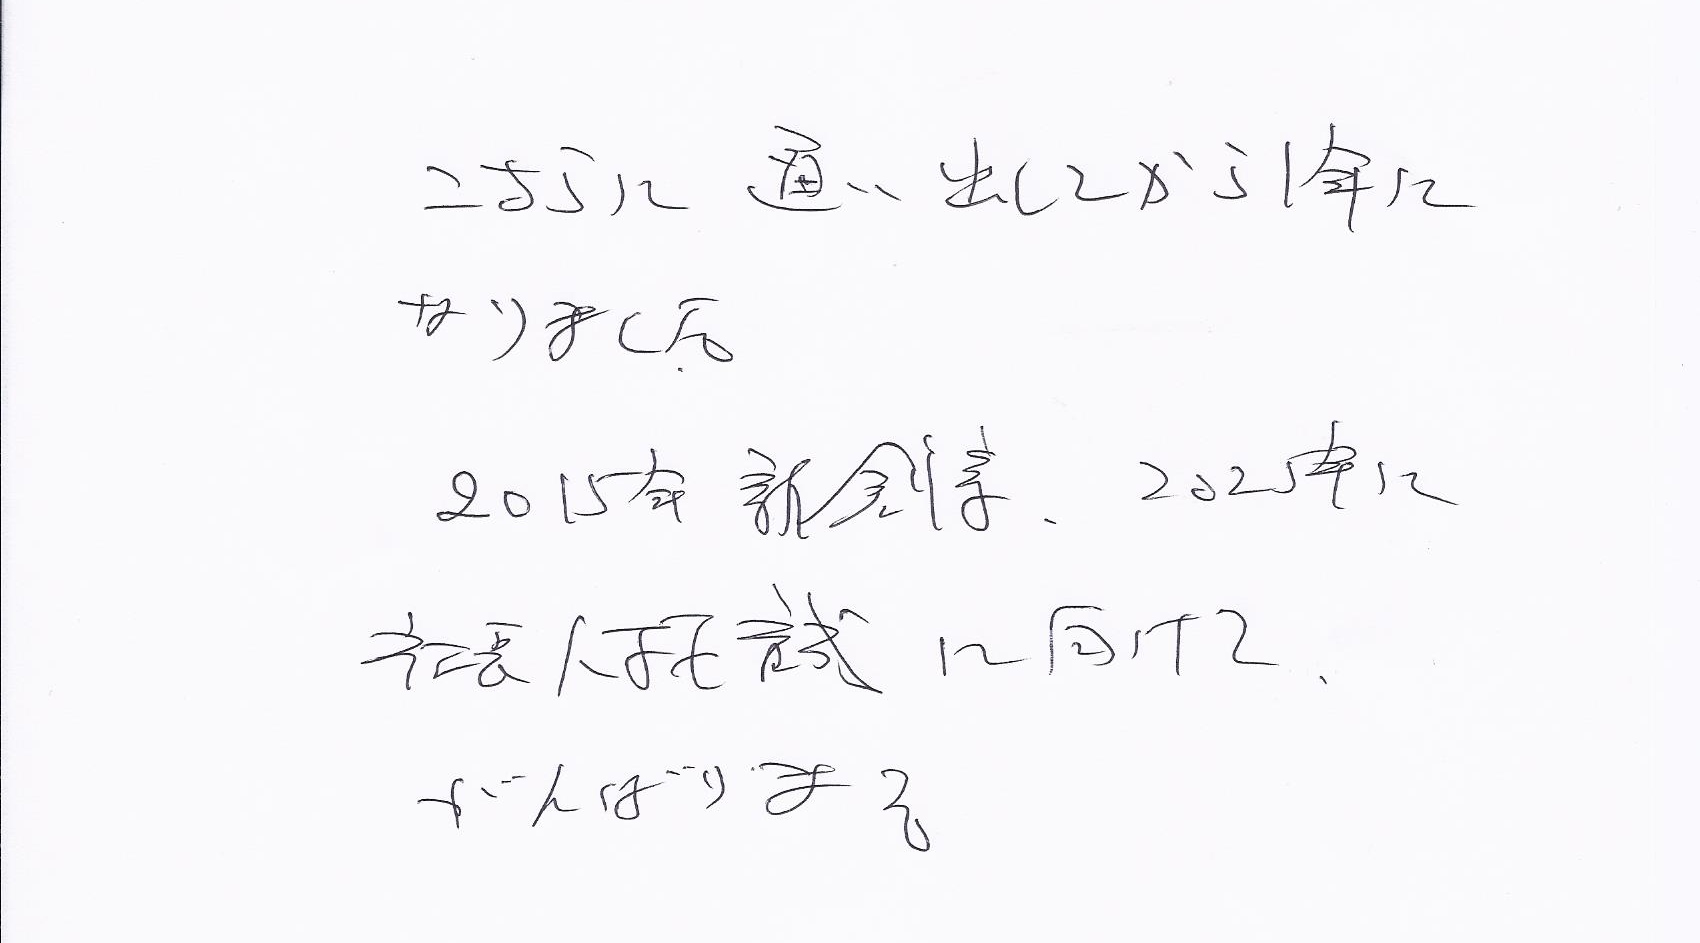 こちらに通い出してから1年に
なりました
2015年 新 、2025年に
社 人 試に向けて、
がんばります